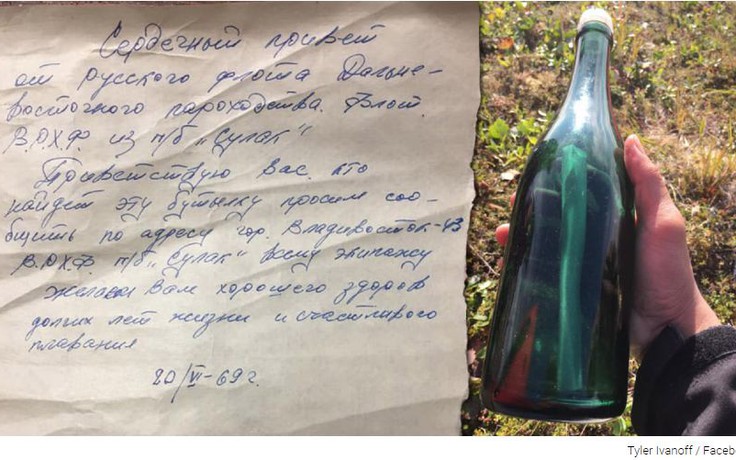 Сердечный привет
от русского флота Дальне-
восточного пароходства. Флот.
В.Р.Х.Ф. из п/б „Сулак"
Приветствую Вас. кто
найдет эту бутылку просим соо-
бщить по адресу гор. Владивосток-43
В.Р.Х.Ф. п/б „Сулак" всему экипажу
желаем Вам хорошего здоров
долгих лет жизни и счастливого
плавания
20/VI-69 г.
Tyler Ivanoff / Faceb